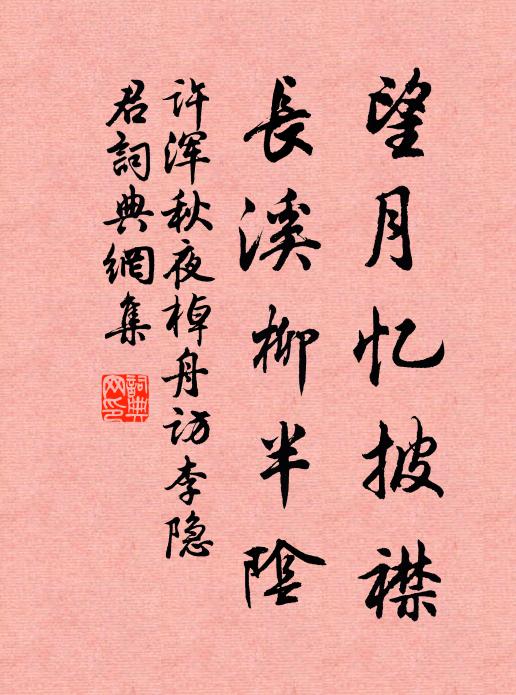 望月忆披襟
長溪柳半陰
许浑秋夜棹舟访李隐
君詞典網集
詞典
网印